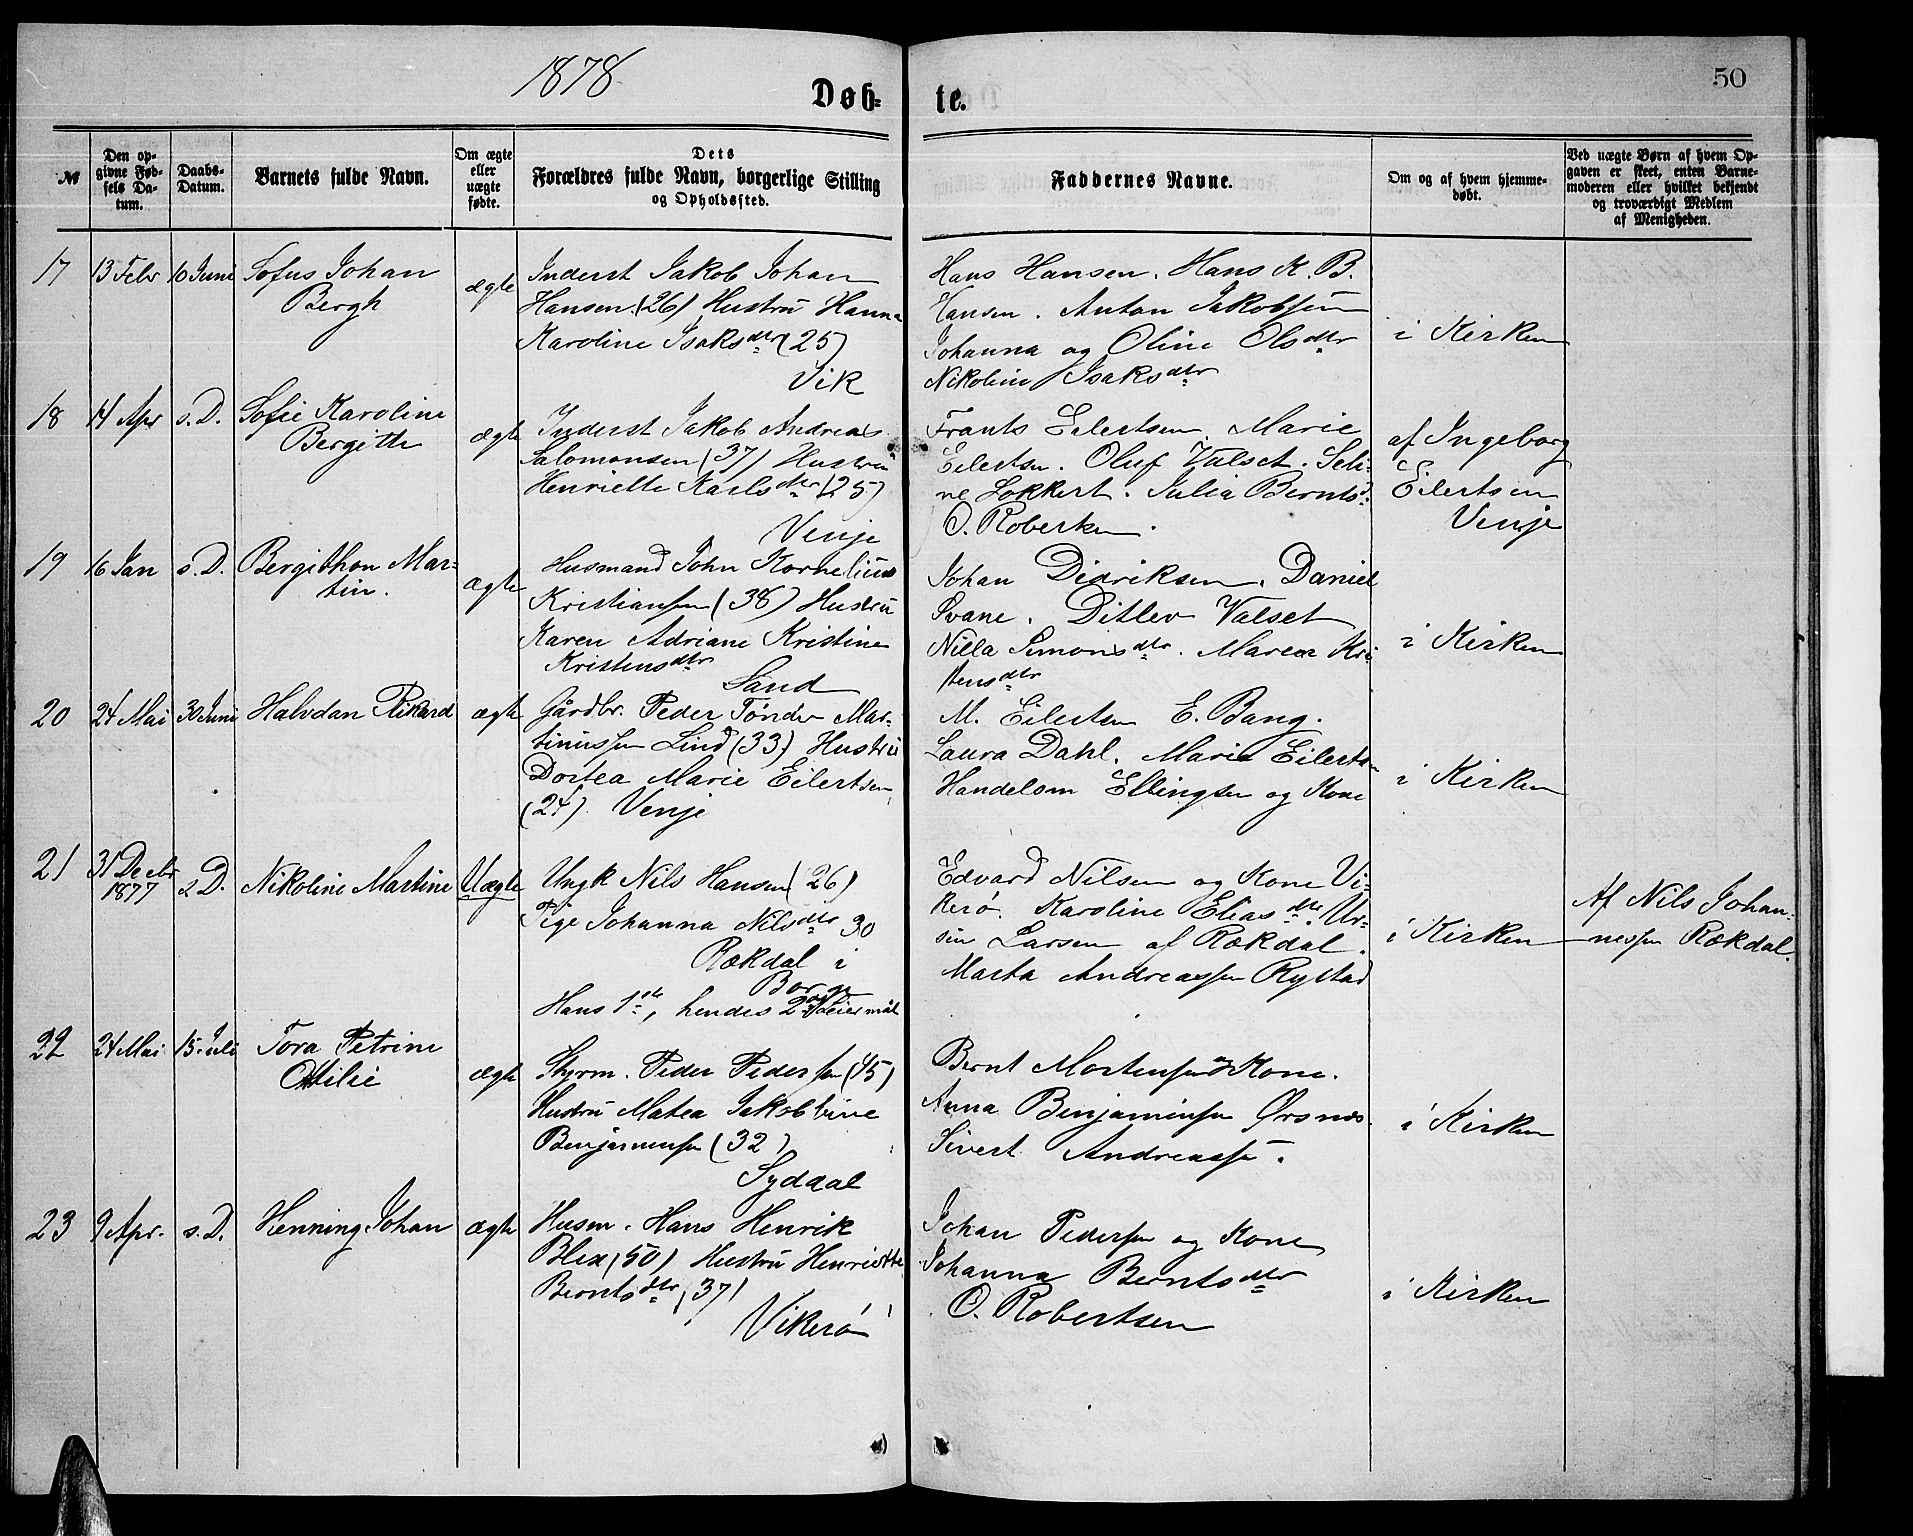 1878
50
Døb-
te.
№
Den op-
givne Fød-
sels Da-
tum.
Daabs-
Datum.
Barnets fulde Navn.
Om ægte
eller
uægte
fødte.
Dets
Forældres fulde Navn, borgerlige Stilling
og Opholdssted.
Faddernes Navne.
Om og af hvem hjemme-
døbt.
Ved uægte Børn af hvem Op-
gaven er skeet, enten Barne-
moderen eller hvilket bekjendt
og troværdigt Medlem
af Menigheden.
17
13 Febr
10 Juni
Sofus Johan
Bergh
ægte
Inderst Jakob Johan
Hansen (26) Hustru Hanna
Karoline Isaksdtr (25)
Vik
Hans Hansen. Hans K. B.
Hansen. Anton Jakobsen
Johanna og Oline Olsdtr
Nikoline Isaksdtr
i Kirken
18
14 Apr
s. D.
Sofie Karoline
Bergitte
ægte
Inderst Jakob Andreas
Salomonsen (37) Hustru
Henriette Karlsdtr (25)
Venje
Frants Eilertsen. Marie
Eilertsen. Oluf Valset. Seli-
ne Lokkert. Julia Bernts
O. Robertsen.
af Ingeborg
Eilertsen
Venje
19
16 Jan
s. D.
Bergithon Mar-
tin.
ægte
Husmand John Kornelius
Kristiansen (38) Hustru
Karen Adriane Kristine
Kristensdtr
Sand
Johan Didriksen. Daniel
Svane. Ditlev Valset
Nilla Simonsdtr. Maren Kri
stensdtr
i Kirken
20
24 Mai
30 Juni
Halvdan Rikard
ægte
Gårdbr. Peder Tønder Mar-
tinussen Lind (33) Hustru
Dortea Marie Eilertsen
(24) Venje
M. Eilertsen E. Bang.
Laura Dahl. Marie Eilerts
Handelsm Ellingsen og Kone
i Kirken
21
31 Decbr
1877
s D.
Nikoline Martine
Uægte
Ungk Nils Hansen (26)
Pige Johanna Nilsdtr 30
Rækdal i
Borge
Hans 1ste, hendes 2det Leiermål
Edvard Nilsen og Kone Vi-
kerø. Karoline Eliasdtr. Ur-
sin Larsen af Rækdal.
Marta Andreassen Rystad
i Kirken
Af Nils Johan-
nessen Rækdal.
22
24 Mai
15. Juli
Tora Petrine
Otilie
ægte
Styrm. Peder Pedersen (45)
Hustru Matea Jakobine
Benjaminsen (32)
Syddal
Bernt Mortensen og Kone.
Anna Benjaminsen Ørsnes.
Sivert Andreassen.
i Kirken
23
9 Apr.
s. D.
Henning Johan
ægte
Husm. Hans Henrik
Blix (50) Hustru Henriette
Berntsdtr (37)
Vikerø
Johan Pedersen og Kone
Johanna Berntsdtr
O. Robertsen
i Kirken